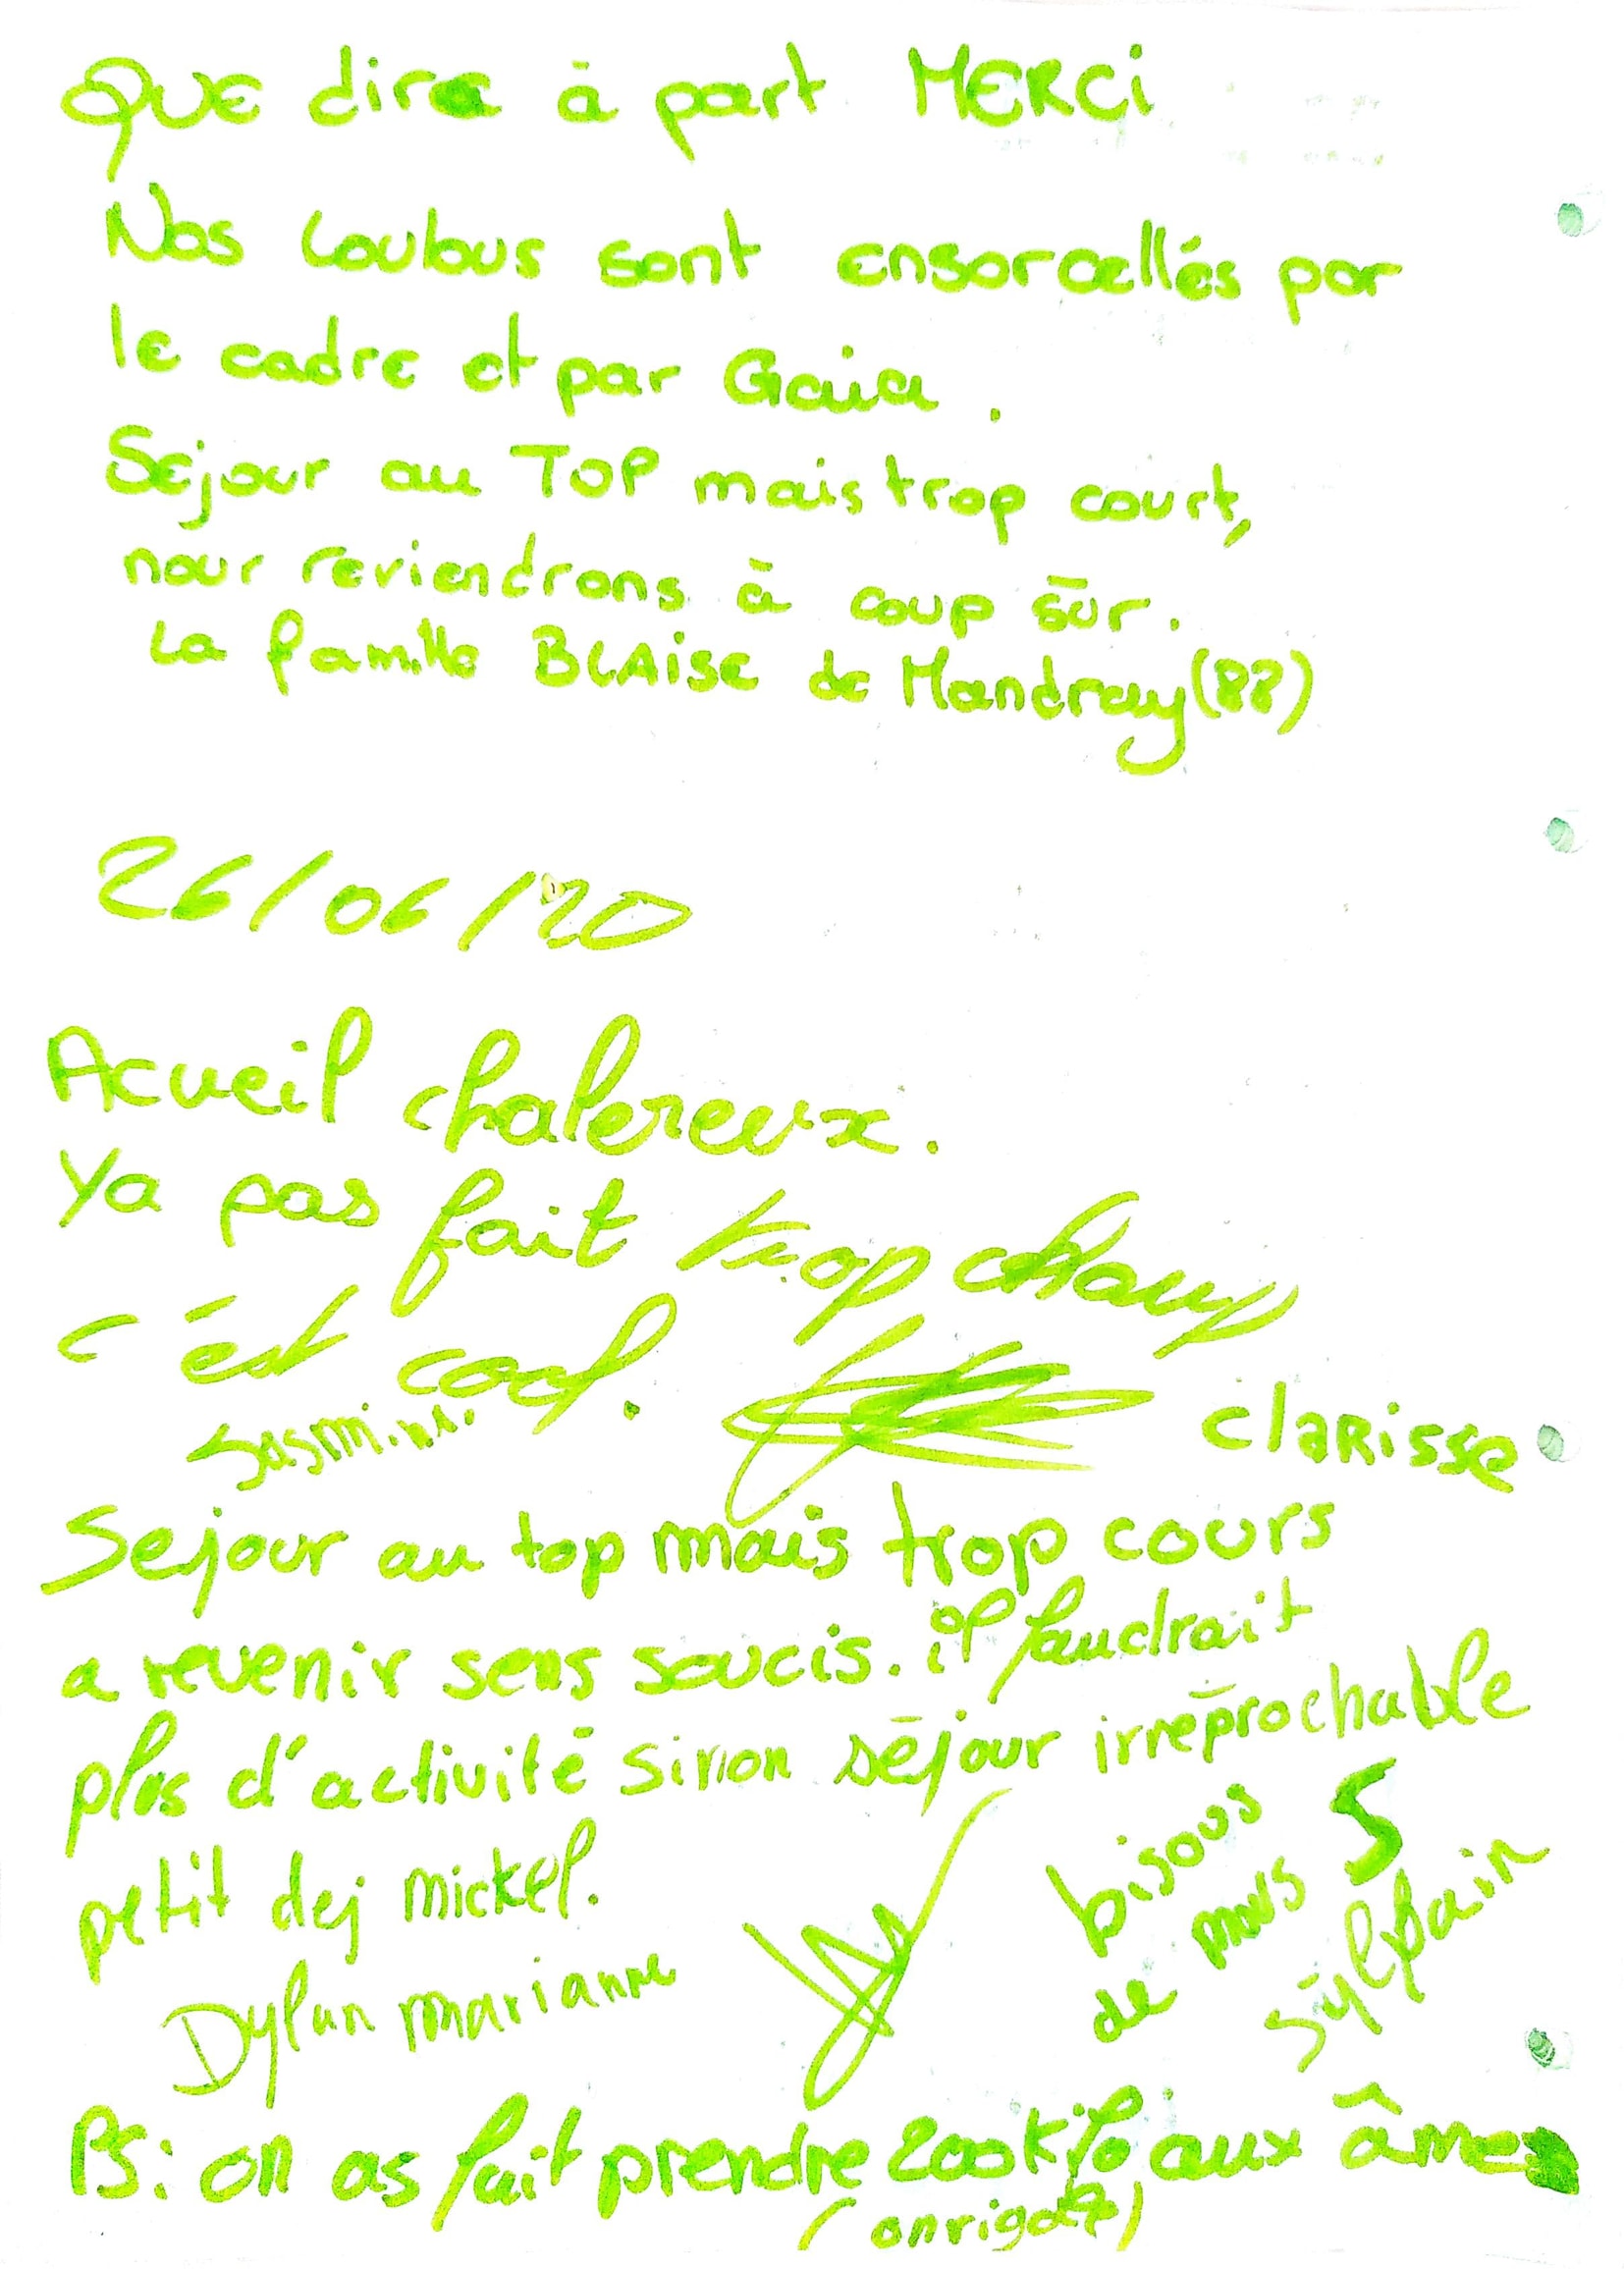 QUE dire à part MERCi
Nos loulous sont ensorcellés par
le cadre et par Gaïa.
Sejour au TOP mais trop court,
nour reviendrons à coup sûr.
La famille BLAise de Mandray (88)
26/06/20
Acueil chalereux.
Ya pas fait trop chaup
c'est cool.
clarisse
Sejour au top mais trop cours
a revenir sens soucis. il faudrait
plus d'activité sinon séjour irréprochable
petit dej mickel.
bisous
de nous 5
Dylan marianne
Sylvain
PS: on as fait prendre 200 kilo aux âmes
(on rigole)